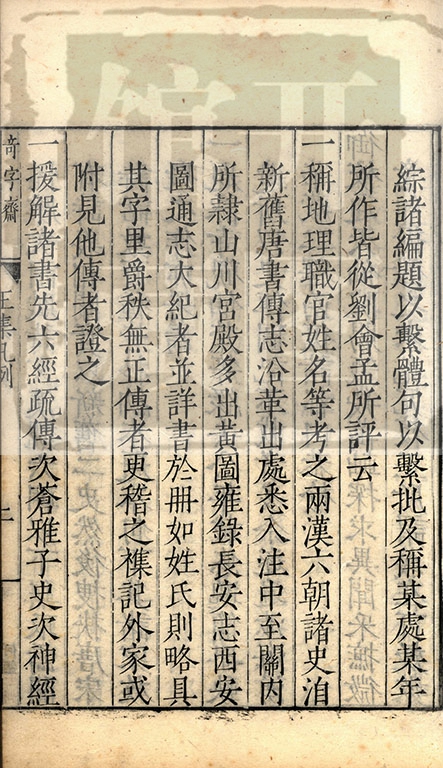 綜諸編題以繫體句以繫批及稱某處某年
所作皆從劉會孟所評云
一稱地理職官姓名等考之兩漢六朝諸史洎
新舊唐書傳志沿革出處悉入注中至關内
所隷山川宮殿多出黃圖雍錄長安志西安
圖通志大紀者並詳書於冊如姓氏則略具
其字里爵秩無正傳者更稽之襍記外家或
附見他傳者證之
一援解諸書先六經疏傳次蒼雅子史次神經
奇字齋
王集凡例
二